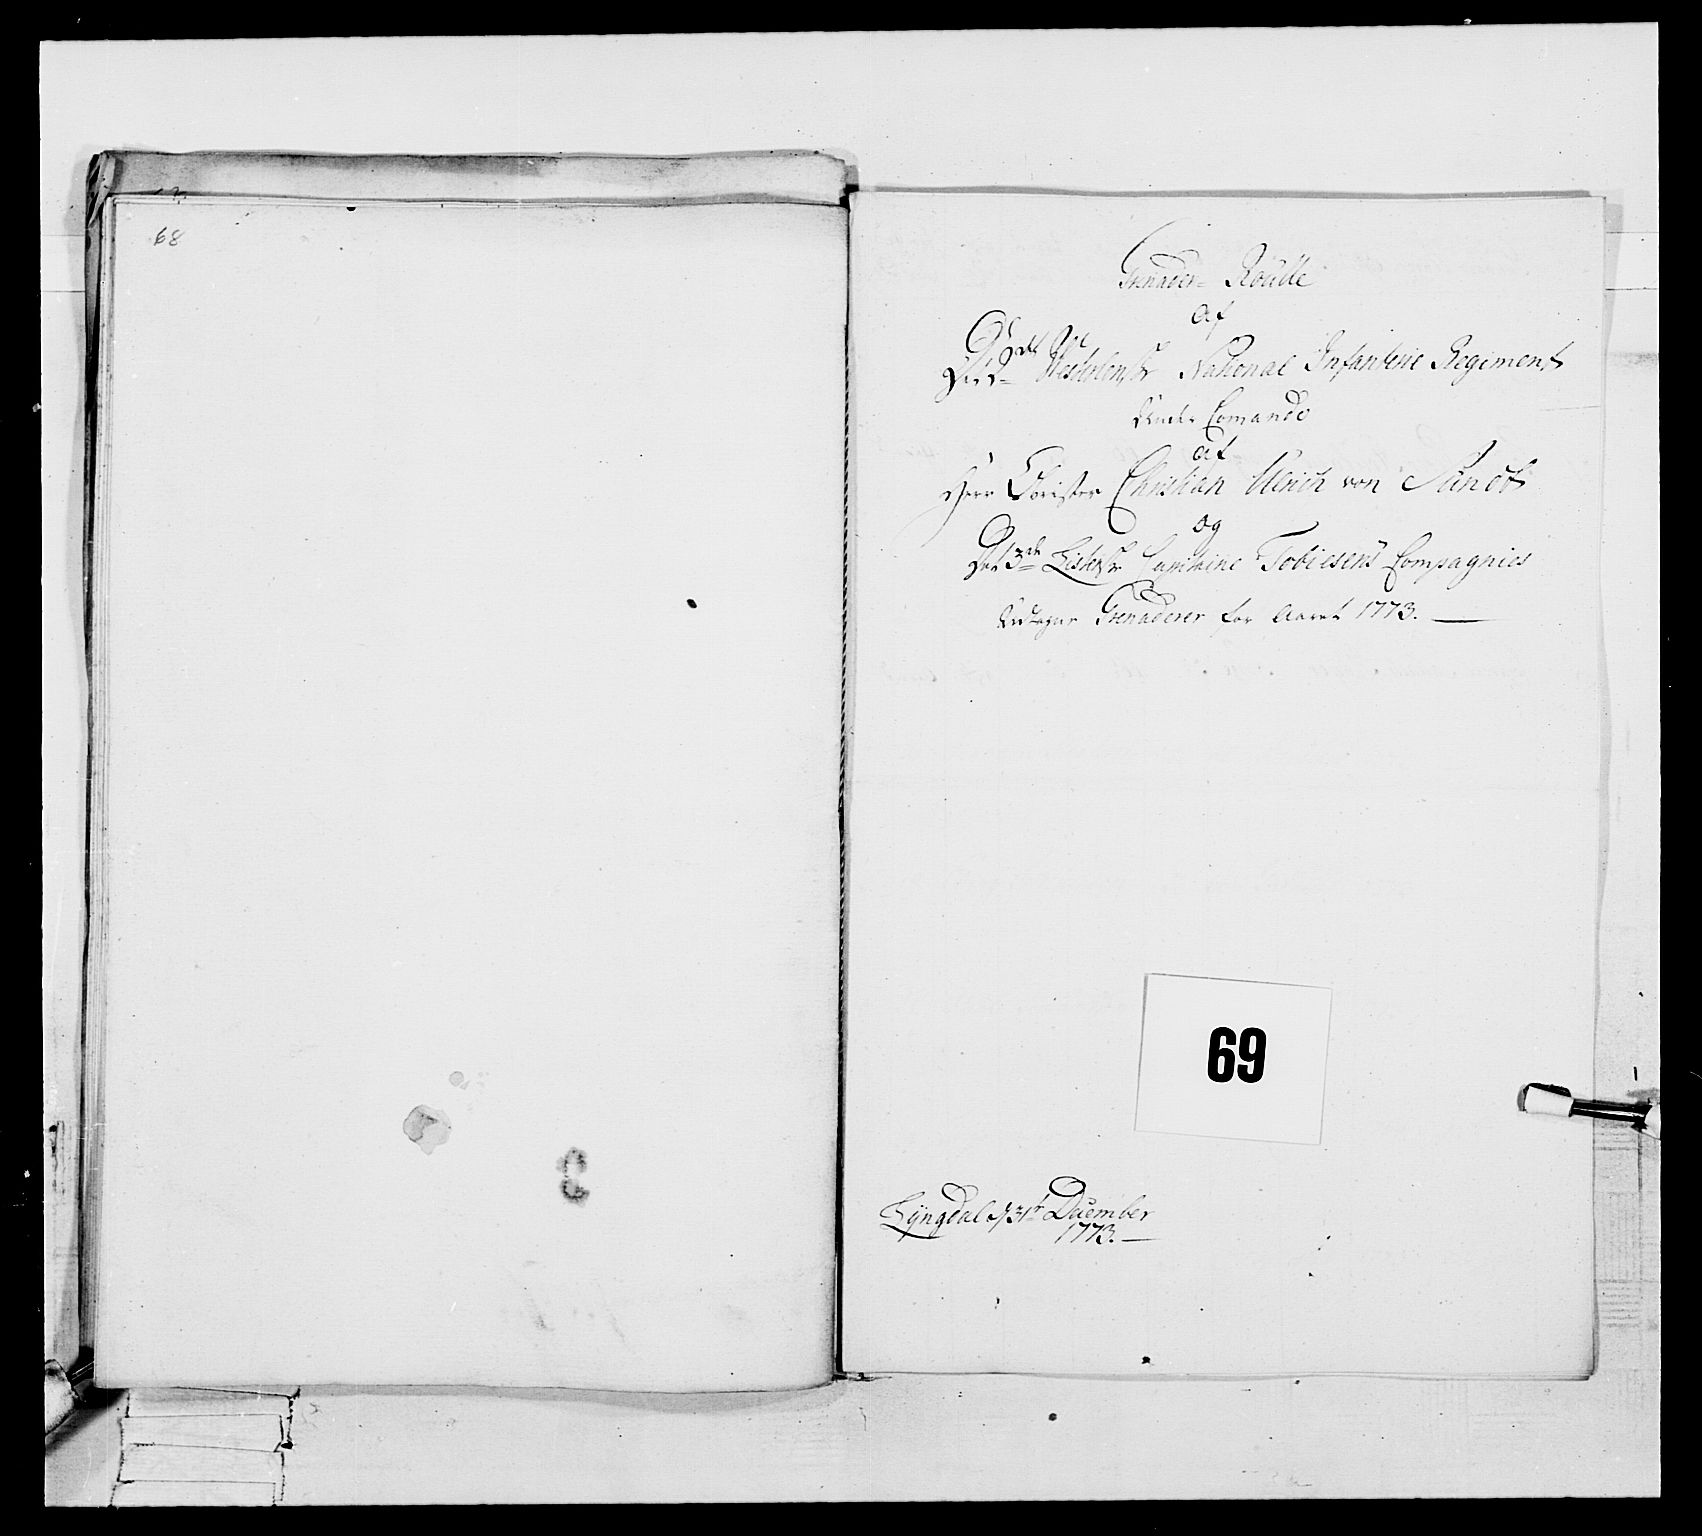 68
Grenader- Roulle
Af
Det 2det Westerlenske National Infanterie Regiment
Under Comando
af
Herr Obrister Christian Ulrich von Sundt
og
Det 3de Listerske Capitaine Tobiesens Compagnies
Grenaderer for Aaret 1773.
69
Lyngdal d 31te December
1773.